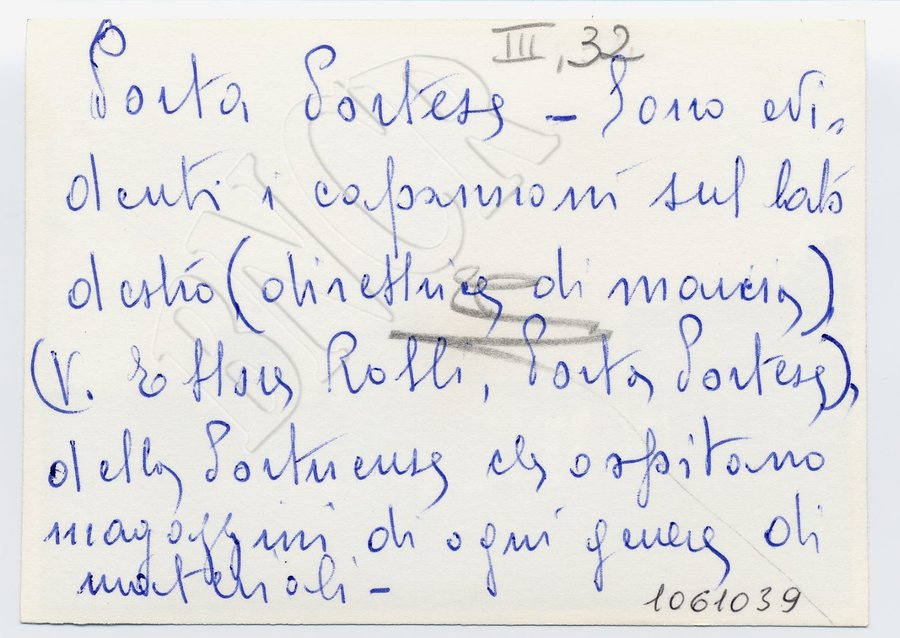 III, 32
Porta Portese - Sono evi-
denti i capannoni sul lato
destro (direttrice di marcia)
(V. Ettore Rolli, Porta Portese),
della Portuense che ospitano
magazzini di ogni genere di
materiali -
1061039
BNCR